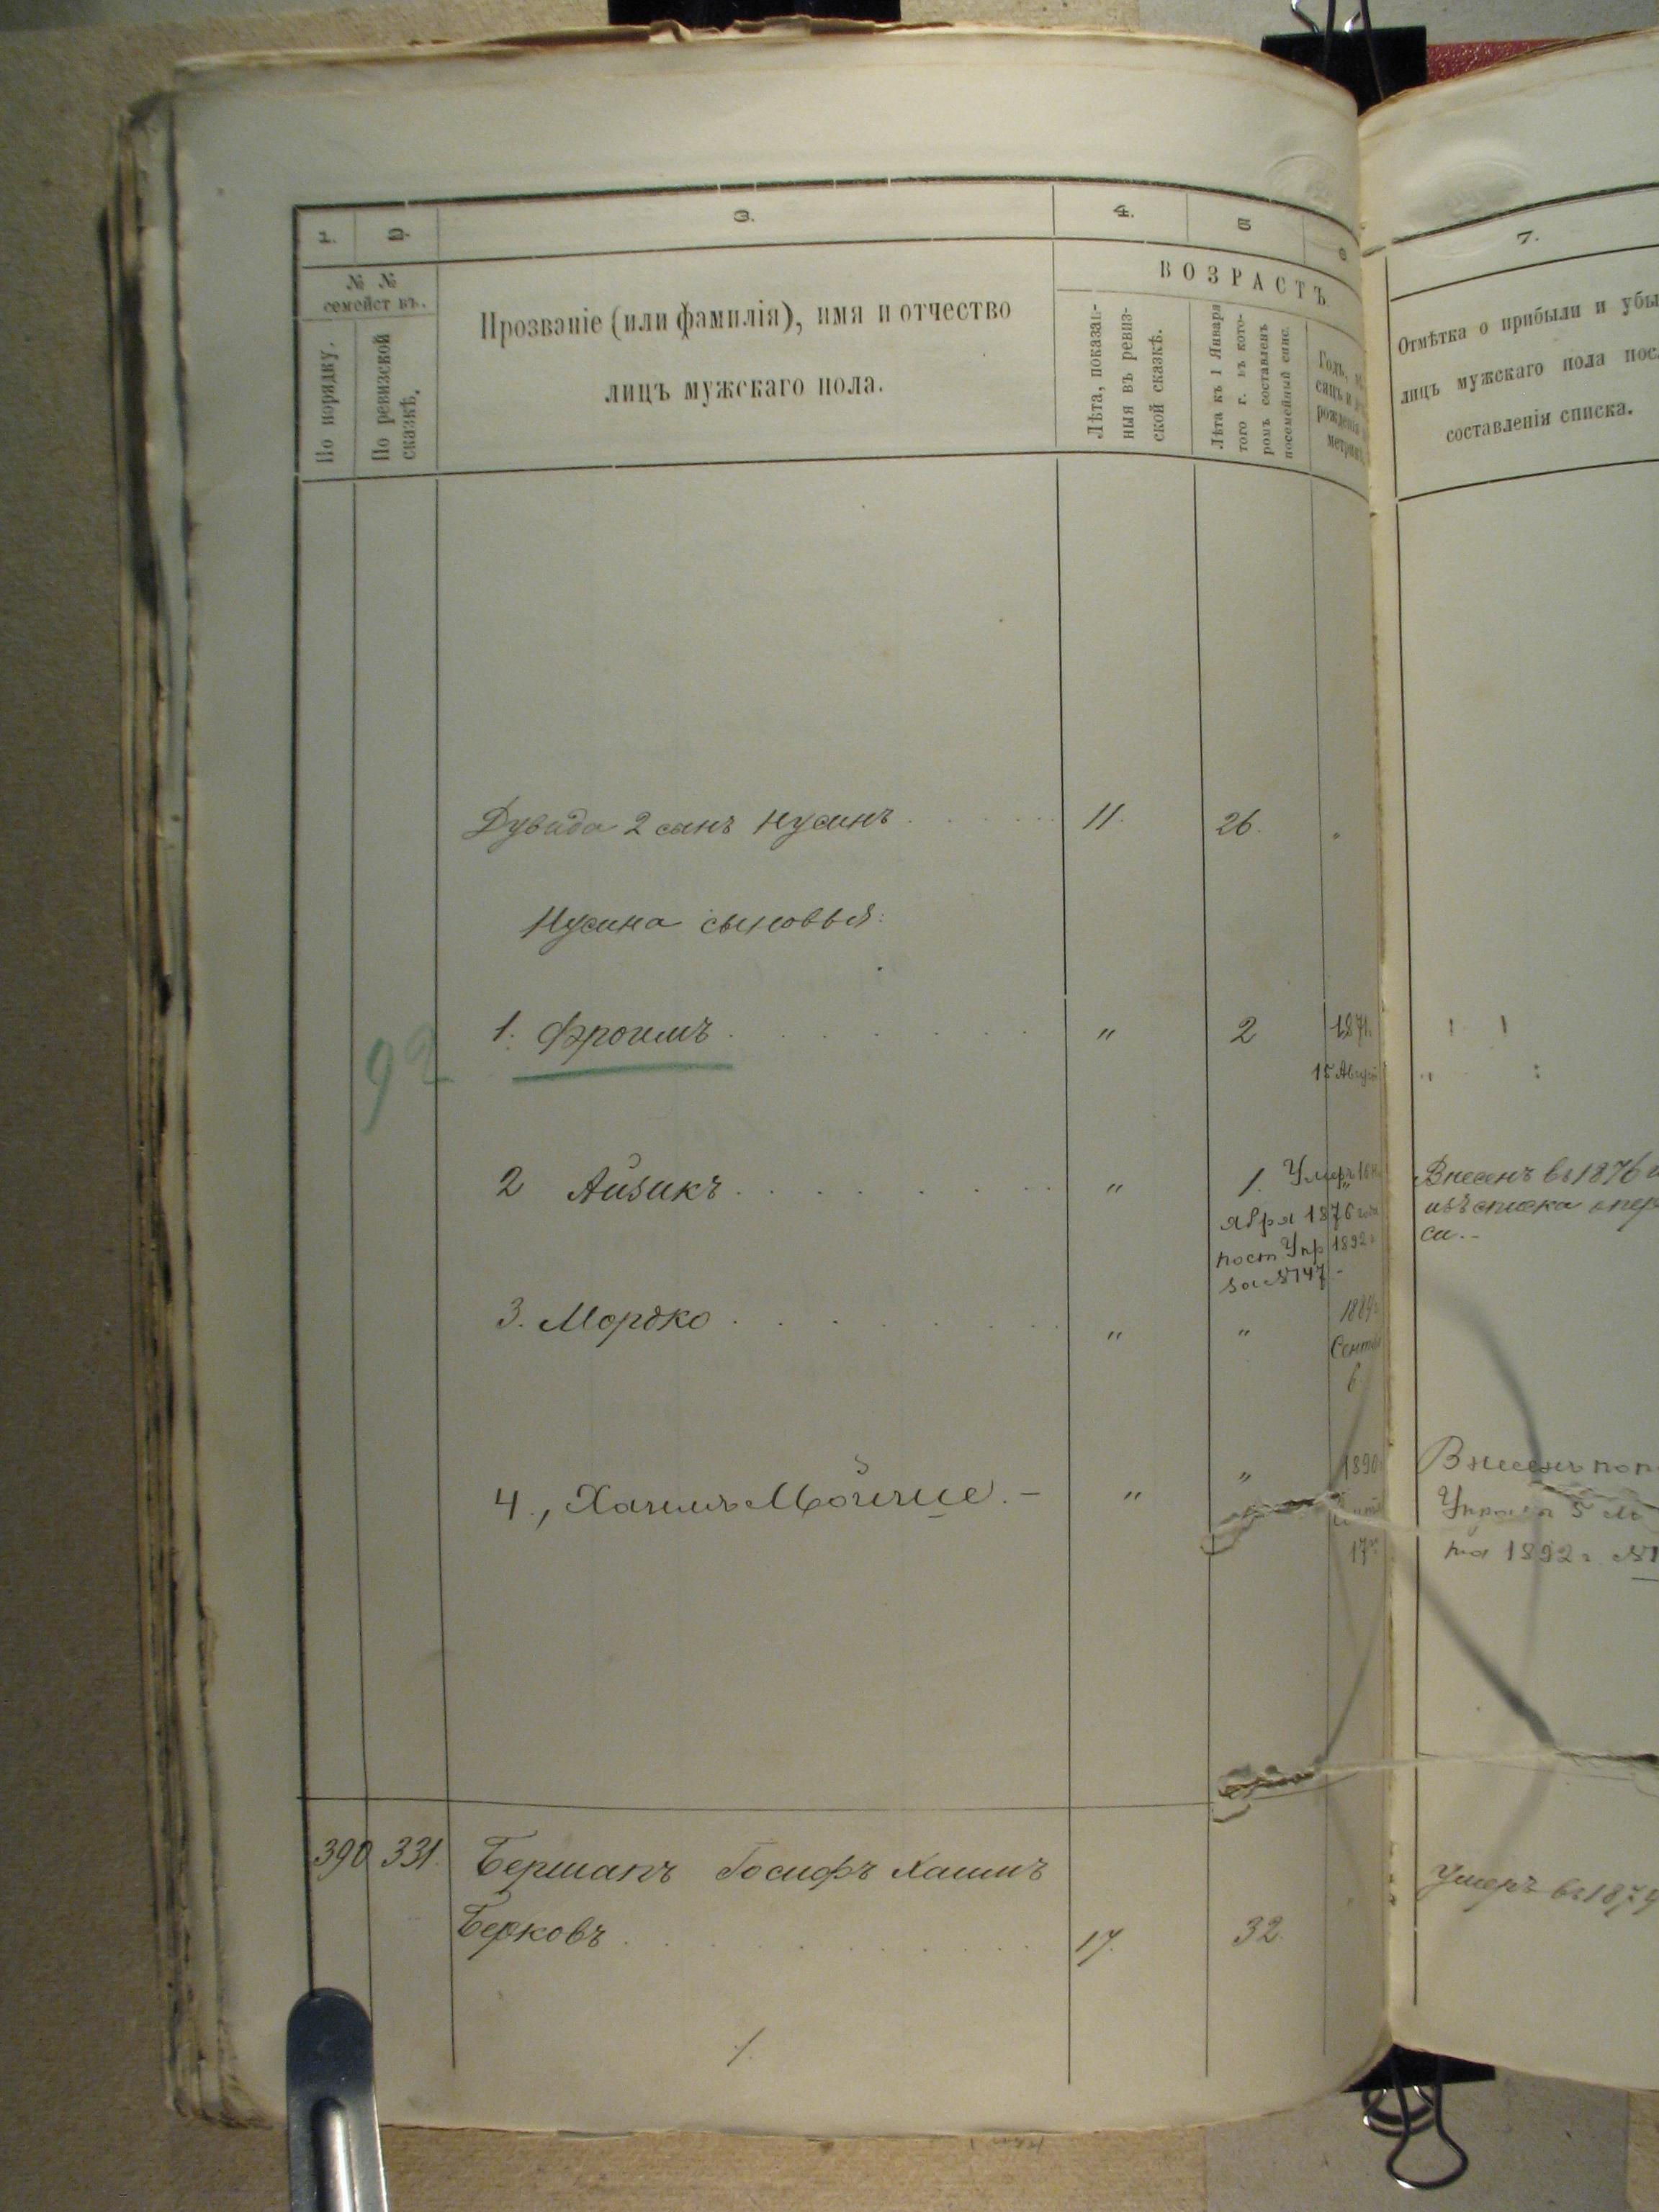 1.
2.
3.
4.
5
6
7.
№ №
семействъ.
По порядку.
По ревизской
сказкѣ.
Прозваніе (или фамилія), имя и отчество
лицъ мужскаго пола.
ВОЗРАСТЪ
Лѣта, показан-
ныя въ ревиз-
ской сказкѣ.
Лѣта къ 1 Января
того г. въ кото-
ромъ составленъ
посемейный спис.
Годъ,
сяцъ и
рожденія
метрик
Отмѣтка о прибыли и убы
лицъ мужскаго пола посл
составленія списка.
Дувида 2 сынъ Нусинъ 11. 26. "
Нусина сыновья:
92
1. Фроимъ " 2 1871
15 Август
2 Айзикъ " 1. Умеръ
ября 1876 года
пост Упр 1892 г
за №147
Внесенъ въ 1876
изъ списка
си.
3. Мордко " " 1884
Сентя
6
4., Хаимъ Мойше. " " 1890
17
Внесенъ по п
Упр 5 Ма
та 1892 г. №1
390 331. Берманъ Іосифъ Хаимъ
Берковъ 17. 32.
Умеръ въ 187
1.